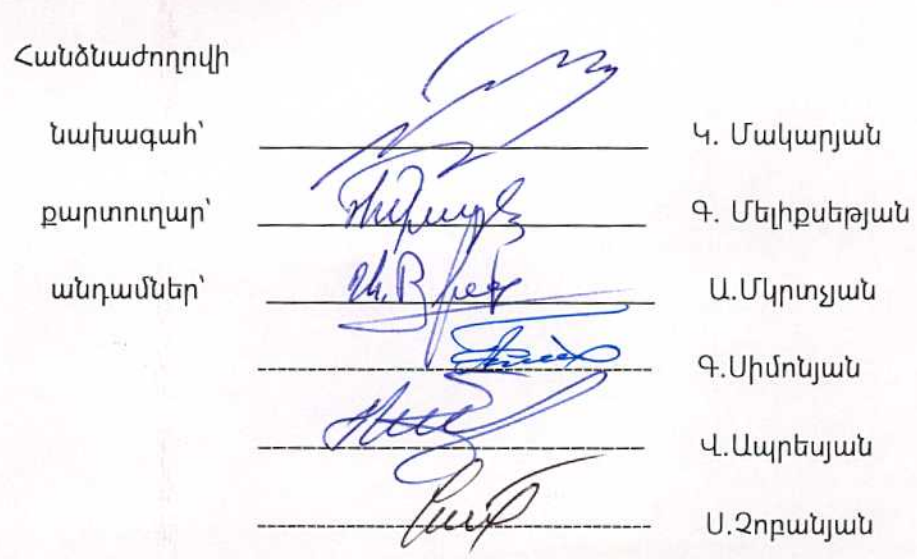 Հանձնաժողովի
նախագահ՝ Կ. Մակարյան
քարտուղար՝ Գ. Մելիքսեթյան
անդամներ՝ Ա.Մկրտչյան
Գ.Սիմոնյան
Վ.Ապրեսյան
Ս.Չոբանյան